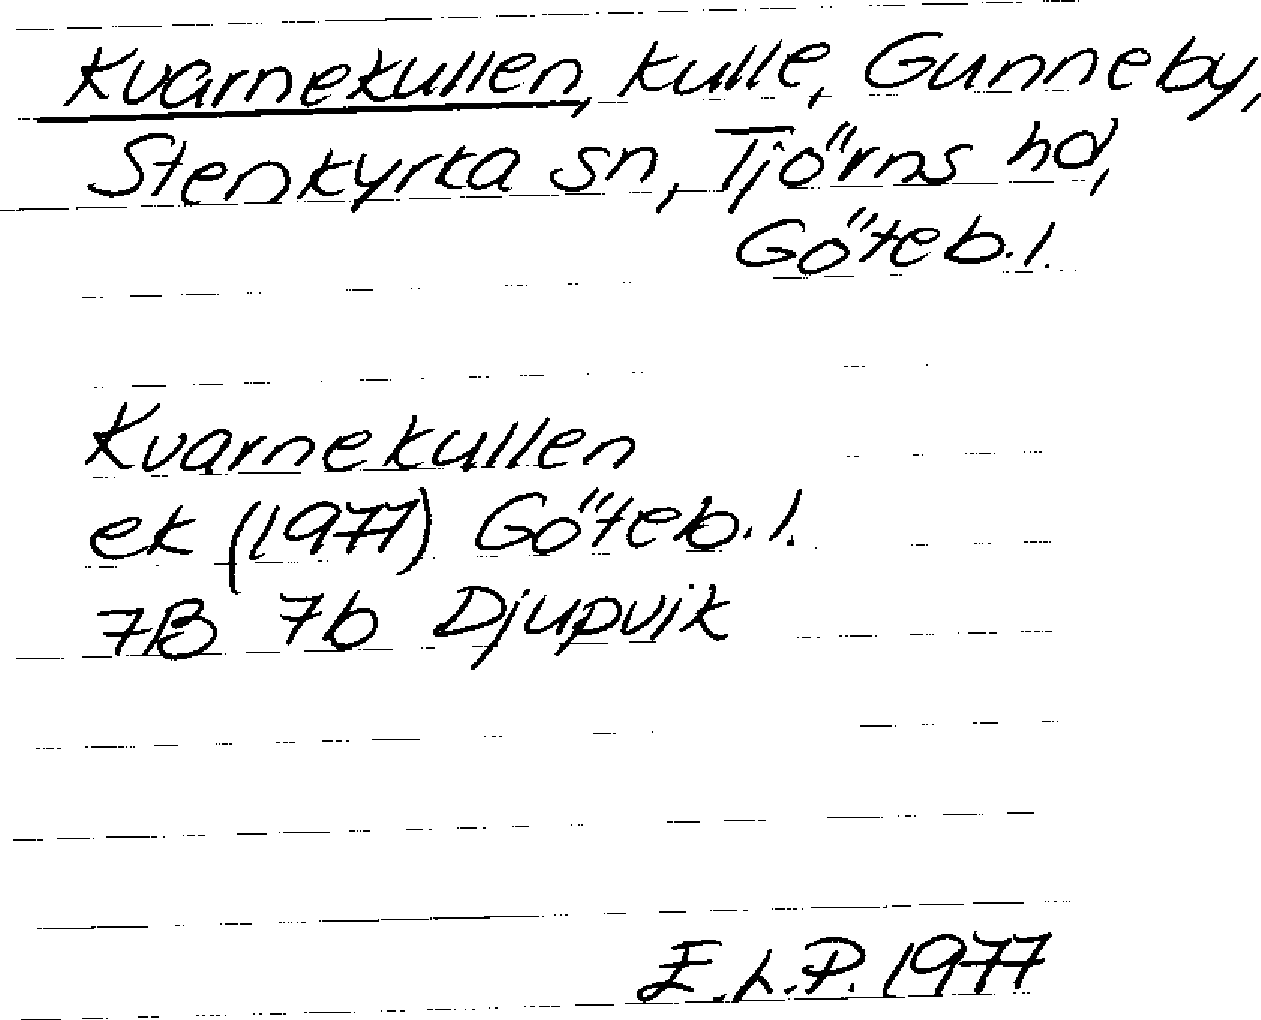 Kvarnekullen, kulle, Gunneby,
Stenkyrka sn, Tjörns hd,
Göteb.l.
Kvarnekullen
ek (1977) Göteb.l.
7B 7b Djupvik
E.L.P. 1977